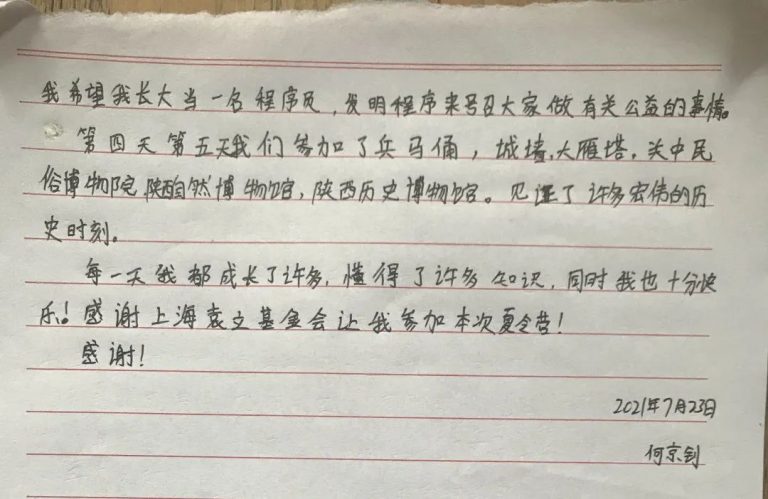 我希望我长大当一名程序员，发明程序来号召大家做有关公益的事情。
第四天第五天我们参加了兵马俑，城墙，大雁塔，关中民
俗博物院，陕西自然博物馆，陕西历史博物馆。见证了许多宏伟的历
史时刻。
每一天我都成长了许多，懂得了许多知识，同时我也十分快
乐！感谢上海袁立基金会让我参加本次夏令营！
感谢！
2021年7月23日
何京钊